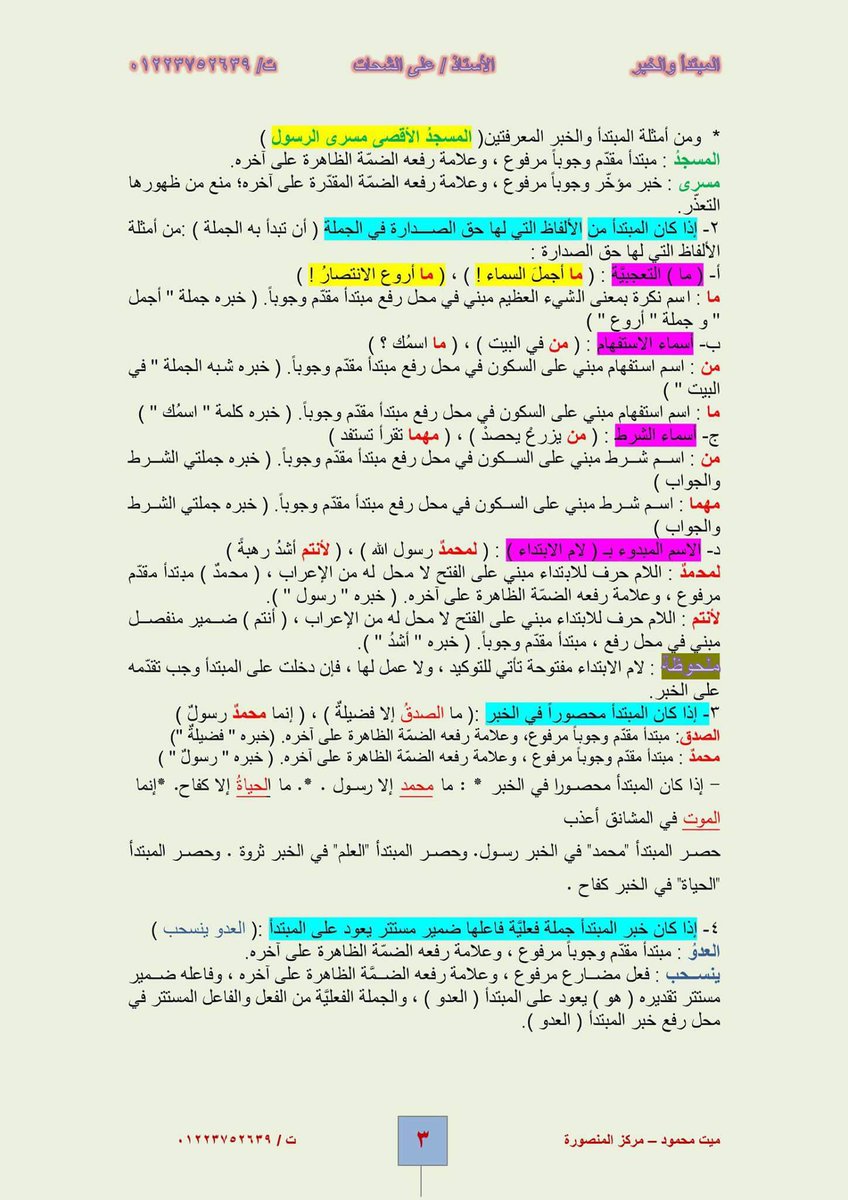 المبتدأ والخبر الأستاذ / على الشحات ت/ ٠١٢٢٣٧٥٢٦٣٩
* ومن أمثلة المبتدأ والخبر المعرفتين( المسجدُ الأقصى مسرى الرسول )
المسجدُ : مبتدأ مقدّم وجوباً مرفوع ، وعلامة رفعه الضمّة الظاهرة على آخره.
مسرى : خبر مؤخّر وجوباً مرفوع ، وعلامة رفعه الضمّة المقدّرة على آخره؛ منع من ظهورها
التعذّر.
٢- إذا كان المبتدأ من الألفاظ التي لها حق الصدارة في الجملة ( أن تبدأ به الجملة ) :من أمثلة
الألفاظ التي لها حق الصدارة :
أ- ( ما ) التعجبيّة : ( ما أجملَ السماء ! ) ، ( ما أروع الانتصارُ ! )
ما : اسم نكرة بمعنى الشيء العظيم مبني في محل رفع مبتدأ مقدّم وجوباً. ( خبره جملة " أجمل
" و جملة " أروع " )
ب- أسماء الاستفهام : ( من في البيت ) ، ( ما اسمُك ؟ )
من : اسم استفهام مبني على السكون في محل رفع مبتدأ مقدّم وجوباً. ( خبره شبه الجملة " في
البيت " )
ما : اسم استفهام مبني على السكون في محل رفع مبتدأ مقدّم وجوباً. ( خبره كلمة " اسمُك " )
ج- أسماء الشرط : ( من يزرعُ يحصدْ ) ، ( مهما تقرأ تستفد )
من : اسم شرط مبني على السكون في محل رفع مبتدأ مقدّم وجوباً. ( خبره جملتي الشرط
والجواب )
مهما : اسم شرط مبني على السكون في محل رفع مبتدأ مقدّم وجوباً. ( خبره جملتي الشرط
والجواب )
د- الاسم المبدوء بـ ( لام الابتداء ) : ( لمحمدٌ رسول الله ) ، ( لأنتم أشدُ رهبةً )
لمحمدٌ : اللام حرف للابتداء مبني على الفتح لا محل له من الإعراب ، ( محمدٌ ) مبتدأ مقدّم
مرفوع ، وعلامة رفعه الضمّة الظاهرة على آخره. ( خبره " رسول " ).
لأنتم : اللام حرف للابتداء مبني على الفتح لا محل له من الإعراب ، ( أنتم ) ضمير منفصل
مبني في محل رفع ، مبتدأ مقدّم وجوباً. ( خبره " أشدُ " ).
ملحوظة : لام الابتداء مفتوحة تأتي للتوكيد ، ولا عمل لها ، فإن دخلت على المبتدأ وجب تقدّمه
على الخبر.
٣- إذا كان المبتدأ محصوراً في الخبر :( ما الصدقُ إلا فضيلةٌ ) ، ( إنما محمدٌ رسولٌ )
الصدق: مبتدأ مقدّم وجوباً مرفوع، وعلامة رفعه الضمّة الظاهرة على آخره. (خبره " فضيلةٌ ")
محمدٌ : مبتدأ مقدّم وجوباً مرفوع ، وعلامة رفعه الضمّة الظاهرة على آخره. ( خبره " رسولٌ " )
– إذا كان المبتدأ محصورا في الخبر * : ما محمد إلا رسول . *. ما الحياةُ إلا كفاح. *إنما
الموت في المشانق أعذب
حصر المبتدأ "محمد" في الخبر رسول. وحصر المبتدأ "العلم" في الخبر ثروة . وحصر المبتدأ
"الحياة" في الخبر كفاح .
٤- إذا كان خبر المبتدأ جملة فعليَّة فاعلها ضمير مستتر يعود على المبتدأ :( العدو ينسحب )
العدوُ : مبتدأ مقدّم وجوباً مرفوع ، وعلامة رفعه الضمّة الظاهرة على آخره.
ينسحب : فعل مضارع مرفوع ، وعلامة رفعه الضمَّة الظاهرة على آخره ، وفاعله ضمير
مستتر تقديره ( هو ) يعود على المبتدأ ( العدو ) ، والجملة الفعليَّة من الفعل والفاعل المستتر في
محل رفع خبر المبتدأ ( العدو ).
ميت محمود – مركز المنصورة ٣ ت / ٠١٢٢٣٧٥٢٦٣٩